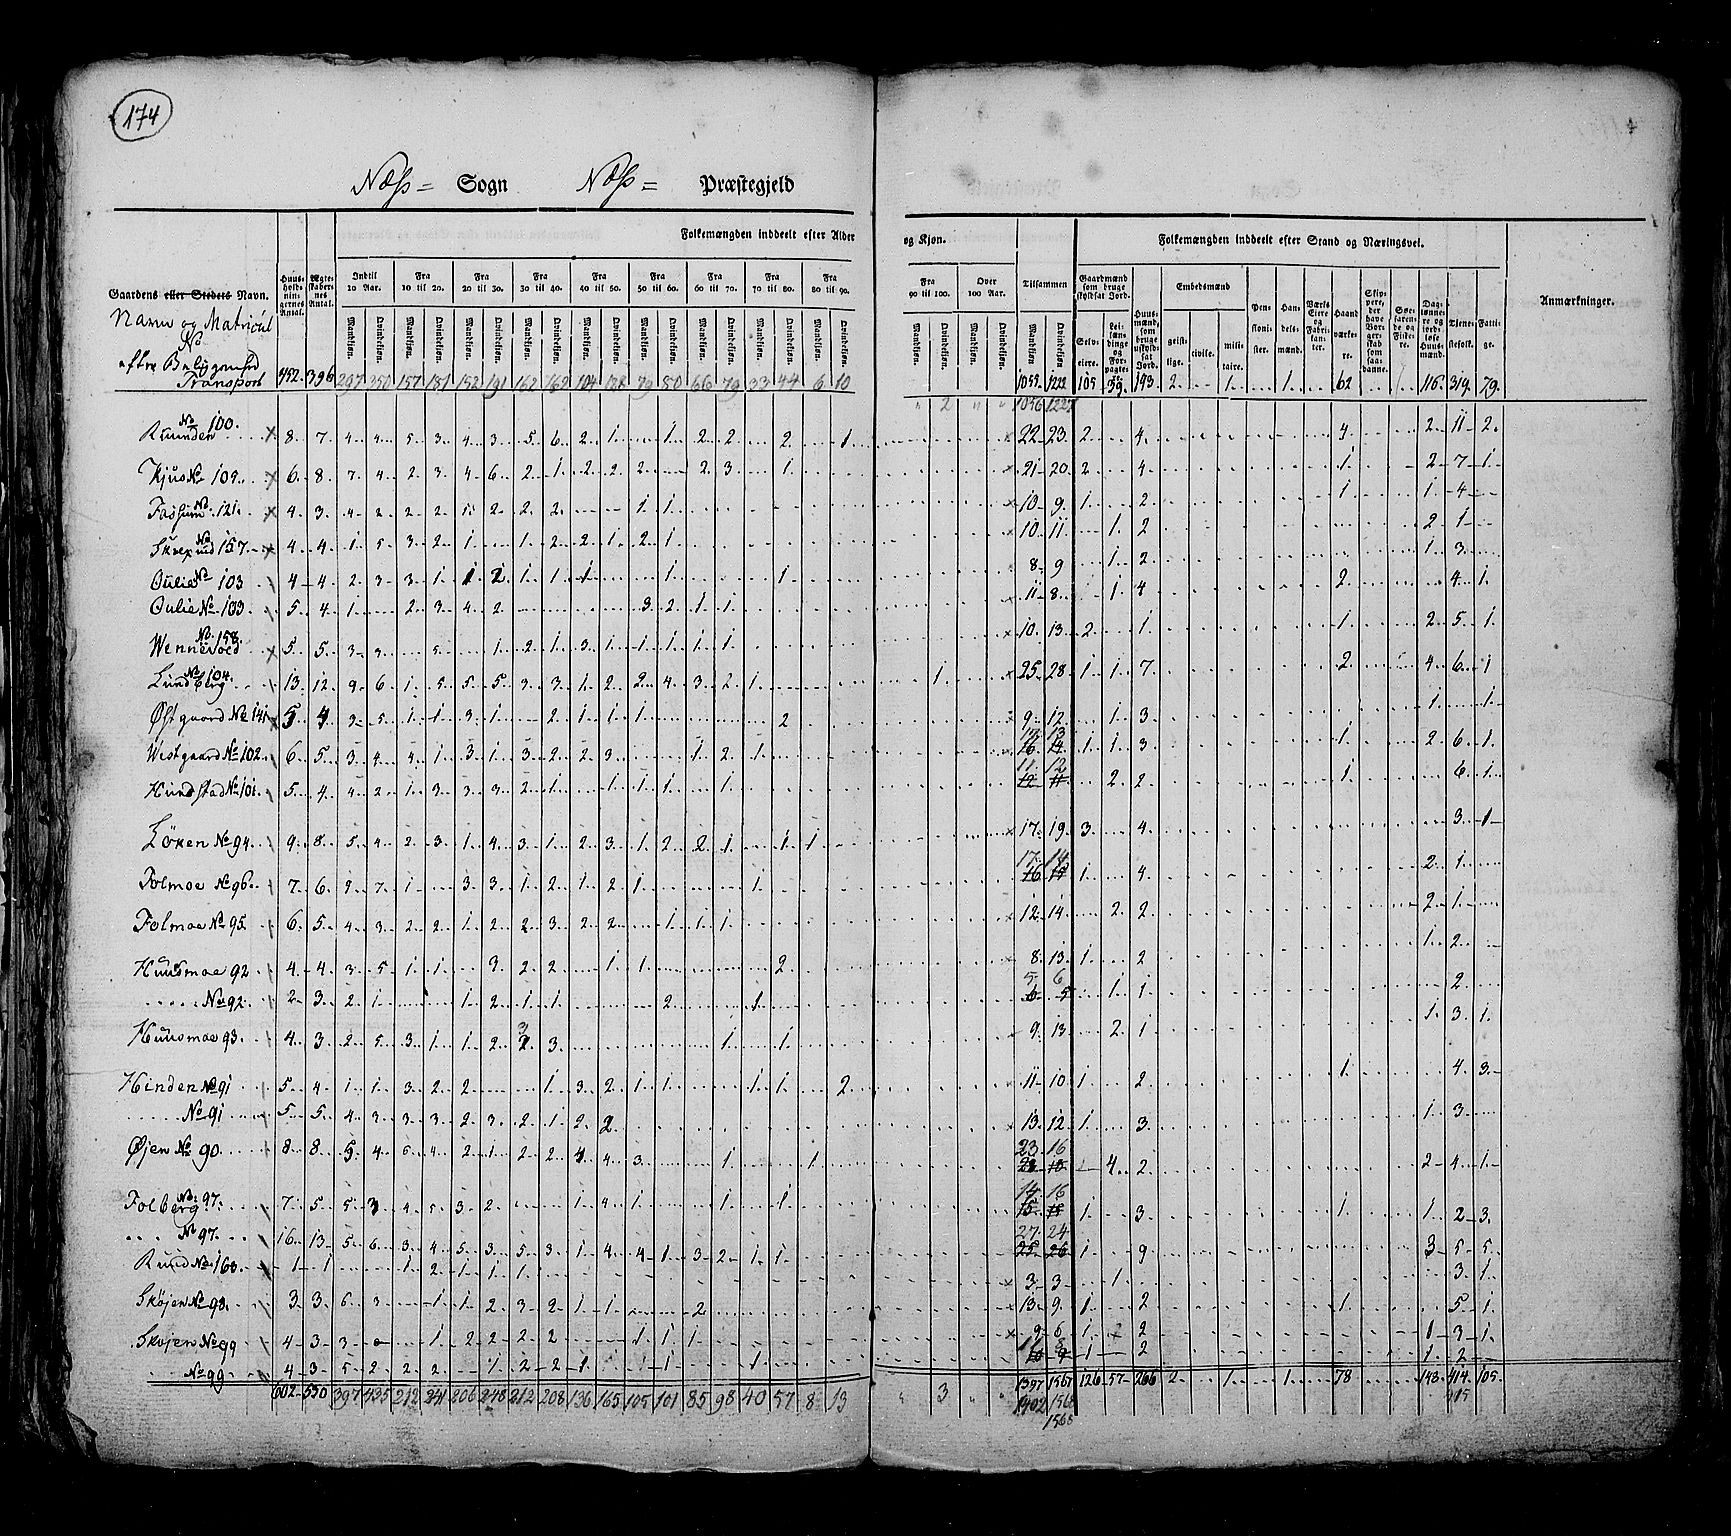 174
Næss = Sogn Næss = Præstegjeld
Folkemængden inddeelt efter Alder og Kjøn. Folkemængden inddeelt efter Stand og Næringsvei.
Gaardens eller Stedets Navn. Huusholdningernes Antal. Ægteskabernes Antal. Indtil 10 Aar. Fra 10 til 20. Fra 20 til 30. Fra 30 til 40. Fra 40 til 50. Fra 50 til 60. Fra 60 til 70. Fra 70 til 80. Fra 80 til 90. Fra 90 til 100. Over 100 Aar. Tilsammen Gaardmænd som bruge skyldsat Jord. Huusmænd, som bruge uskyldsat Jord. Embedsmænd Pensionister. Handelsmænd. Værks Eiere og Fabrikanter. Haandværkere. Skippere, der have Borgerskab som saadanne. Søefarende og Fiskere. Daglønnere og jordløse Huusmænd. Tjenestefolk. Fattige. Anmærkninger.
Mandkjøn. Qvindekjøn. Selveiere. Leilændinge og Forpagtere. geistlige. civile. militaire.
Navn og Matricul
No
Transport 452 396 297 350 157 181 152 191 162 162 104 128 79 80 66 79 33 44 6 10 1055 1222 105 39 193 2 1 1 62 116 314 79
2 1056 1227
No 100. 8 7 4 4 5 3 4 3 5 6 2 1 1 2 2 2 1 22 23 2 4 4 2 11 2
Kjus No 109 6 8 7 4 2 3 4 6 2 1 2 2 2 2 3 1 21 20 2 4 1 2 7 1
No 121 4 3 4 2 2 2 1 2 2 2 1 1 10 9 1 2 1 1 4
No 157 4 4 1 5 3 2 1 1 2 2 1 2 1 10 11 1 2 2 1
Oulie No 103 4 4 2 3 3 1 1 2 1 1 1 1 1 8 9 1 2 1 3
Oulie No 103 5 4 1 2 3 4 2 3 2 1 1 11 8 1 4 2 4 1
Wennevold No 158 5 5 3 3 5 1 2 1 3 1 1 1 1 1 10 13 2 1 1 2 5 1
Lundberg No 104 13 12 9 6 1 5 5 5 3 3 1 2 2 4 3 2 1 1 25 28 1 1 7 2 4 6 1
Østgaard No 141 5 4 3 5 1 1 3 1 2 1 1 1 2 9 12 1 3 1 1
17 13
Westgaard No 102 6 5 3 4 4 1 3 1 3 2 2 3 1 2 1 16 14 1 1 3 1 2 6 1
11 12
Hundstad No 101 5 4 4 2 1 3 3 3 2 1 1 1 1 1 1 12 11 2 2 1 6 1
Löken No 94 9 8 5 4 2 3 1 4 3 1 2 3 1 2 2 1 1 1 17 19 3 4 3 1
17 14
Folmoe No 96 7 6 9 7 1 3 3 1 2 1 2 1 1 16 15 1 4 2 1
Folmoe No 95 6 5 4 3 2 2 1 2 2 3 2 2 1 1 1 12 14 2 2 2 1
Huusmoe 92 4 4 3 5 1 1 3 2 2 1 1 2 8 13 1 2 1 2
5 6
No 92 2 3 2 1 1 2 1 1 2 1 6 5 1 1 2
Huusmoe 93 4 3 2 5 3 1 1 2 3 3 1 1 9 13 2 1 1 3 1
Hinden No 91 5 4 1 1 3 2 2 1 3 2 1 1 1 1 2 11 10 1 2 1 4 3
No 91 5 5 4 3 3 3 2 3 2 1 2 2 13 12 1 3 1 3
23 16
Øjen No 90 8 8 5 4 5 4 2 1 2 2 4 4 3 1 1 4 2 2 4 1
14 16
Folberg No 97 7 5 5 3 4 5 3 2 1 4 1 1 1 15 15 1 3 1 1 2 3
27 24
No 97 16 13 5 6 3 4 5 3 5 3 1 4 4 1 3 2 1 1 25 26 1 9 3 5 5
Ruud No 160 1 1 1 2 1 1 1 3 3 1 3 1
Sköjen No 98 3 3 6 3 1 1 2 3 2 1 1 2 13 9 1 2 1 5 1
Skojen No 99 4 3 3 1 2 2 2 2 1 1 1 9 6 1 2 1 3 1
No 99 4 3 5 2 2 2 1 2 2 1 1 1 10 9 1 2 1 2
602 530 397 435 212 241 206 248 212 208 136 165 105 101 85 98 40 57 8 13 3 1397 1567 126 57 266 2 1 1 78 143 414 105
1402 1568 415
1568